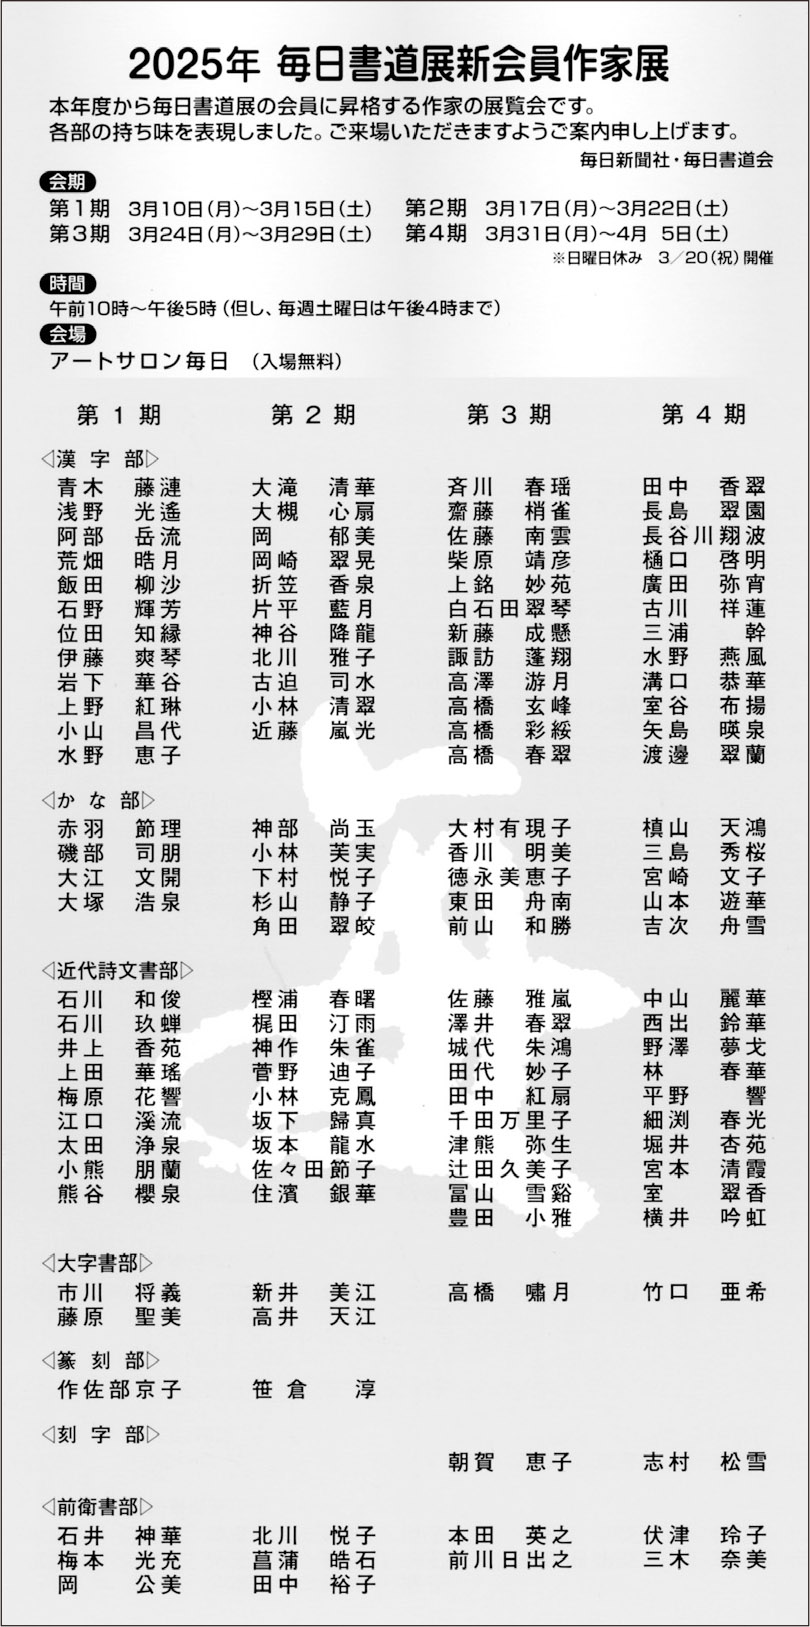 2025年 毎日書道展新会員作家展
本年度から毎日書道展の会員に昇格する作家の展覧会です。
各部の持ち味を表現しました。ご来場いただきますようご案内申し上げます。
毎日新聞社・毎日書道会
会期
第1期 3月10日(月)〜3月15日(土) 第2期 3月17日(月)〜3月22日(土)
第3期 3月24日(月)〜3月29日(土) 第4期 3月31日(月)〜4月 5日(土)
※日曜日休み 3/20(祝)開催
時間
午前10時〜午後5時(但し、毎週土曜日は午後4時まで)
会場
アートサロン毎日 (入場無料)
第1期 第2期 第3期 第4期
◁漢字部▷
青木 藤漣 大滝 清華 斉川 春瑶 田中 香翠
浅野 光遙 大槻 心扇 齋藤 梢雀 長島 翠園
阿部 岳流 岡 郁美 佐藤 南雲 長谷川翔波
荒畑 晧月 岡崎 翠晃 柴原 靖彦 樋口 啓明
飯田 柳沙 折笠 香泉 上銘 妙苑 廣田 弥宵
石野 輝芳 片平 藍月 白石田翠琴 古川 祥蓮
位田 知縁 神谷 降龍 新藤 成懸 三浦 幹
伊藤 爽琴 北川 雅子 諏訪 蓬翔 水野 燕風
岩下 華谷 古迫 司水 高澤 游月 溝口 恭華
上野 紅琳 小林 清翠 高橋 玄峰 室谷 布揚
小山 昌代 近藤 嵐光 高橋 彩綏 矢島 暎泉
水野 恵子 高橋 春翠 渡邊 翠蘭
◁かな部▷
赤羽 節理 神部 尚玉 大村有現子 槙山 天鴻
磯部 司朋 小林 芙実 香川 明美 三島 秀桜
大江 文開 下村 悦子 徳永美恵子 宮崎 文子
大塚 浩泉 杉山 静子 東田 舟南 山本 遊華
角田 翠皎 前山 和勝 吉次 舟雪
◁近代詩文書部▷
石川 和俊 樫浦 春曙 佐藤 雅嵐 中山 麗華
石川 玖蝉 梶田 汀雨 澤井 春翠 西出 鈴華
井上 香苑 神作 朱雀 城代 朱鴻 野澤 夢戈
上田 華瑤 菅野 迪子 田代 妙子 林 春華
梅原 花響 小林 克鳳 田中 紅扇 平野 響
江口 溪流 坂下 歸真 千田万里子 細渕 春光
太田 浄泉 坂本 龍水 津熊 弥生 堀井 杏苑
小熊 朋蘭 佐々田節子 辻田久美子 宮本 清霞
熊谷 櫻泉 住濱 銀華 冨山 雪谿 室 翠香
豊田 小雅 横井 吟虹
◁大字書部▷
市川 将義 新井 美江 高橋 嘯月 竹口 亜希
藤原 聖美 高井 天江
◁篆刻部▷
作佐部京子 笹倉 淳
◁刻字部▷
朝賀 恵子 志村 松雪
◁前衛書部▷
石井 神華 北川 悦子 本田 英之 伏津 玲子
梅本 光充 菖蒲 皓石 前川日出之 三木 奈美
岡 公美 田中 裕子